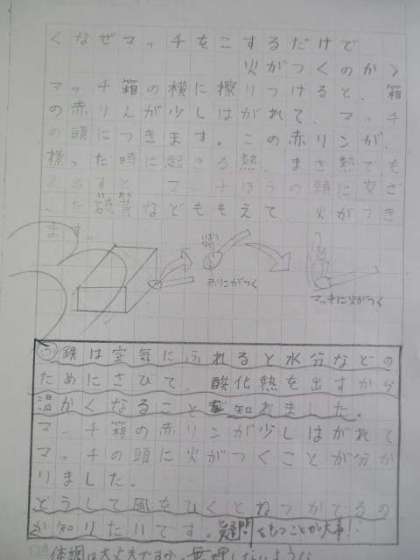 くなぜマッチをこするだけで
火がつくのか〉
マッチ箱の横に擦りつけると、箱
の赤りんが少しはがれて、マッチ
の頭につきます。この赤リンが、
擦った時に起きる熱、まさ熱でも
マッチぼうの頭に
などももえて、火がつき
ます。
赤リンがつく
マッチに火がつく
鉄は空気にふれると水分などの
ためにさびて、酸化熱を出すから
温かくなることを知れました。
マッチ箱の赤リンが少しはがれて
マッチの頭に火がつくことが分か
りました。
どうして風をひくとねつがでるの
か知りたいです。疑問をもつことが大事!
体調は大丈夫ですか。無理しないように